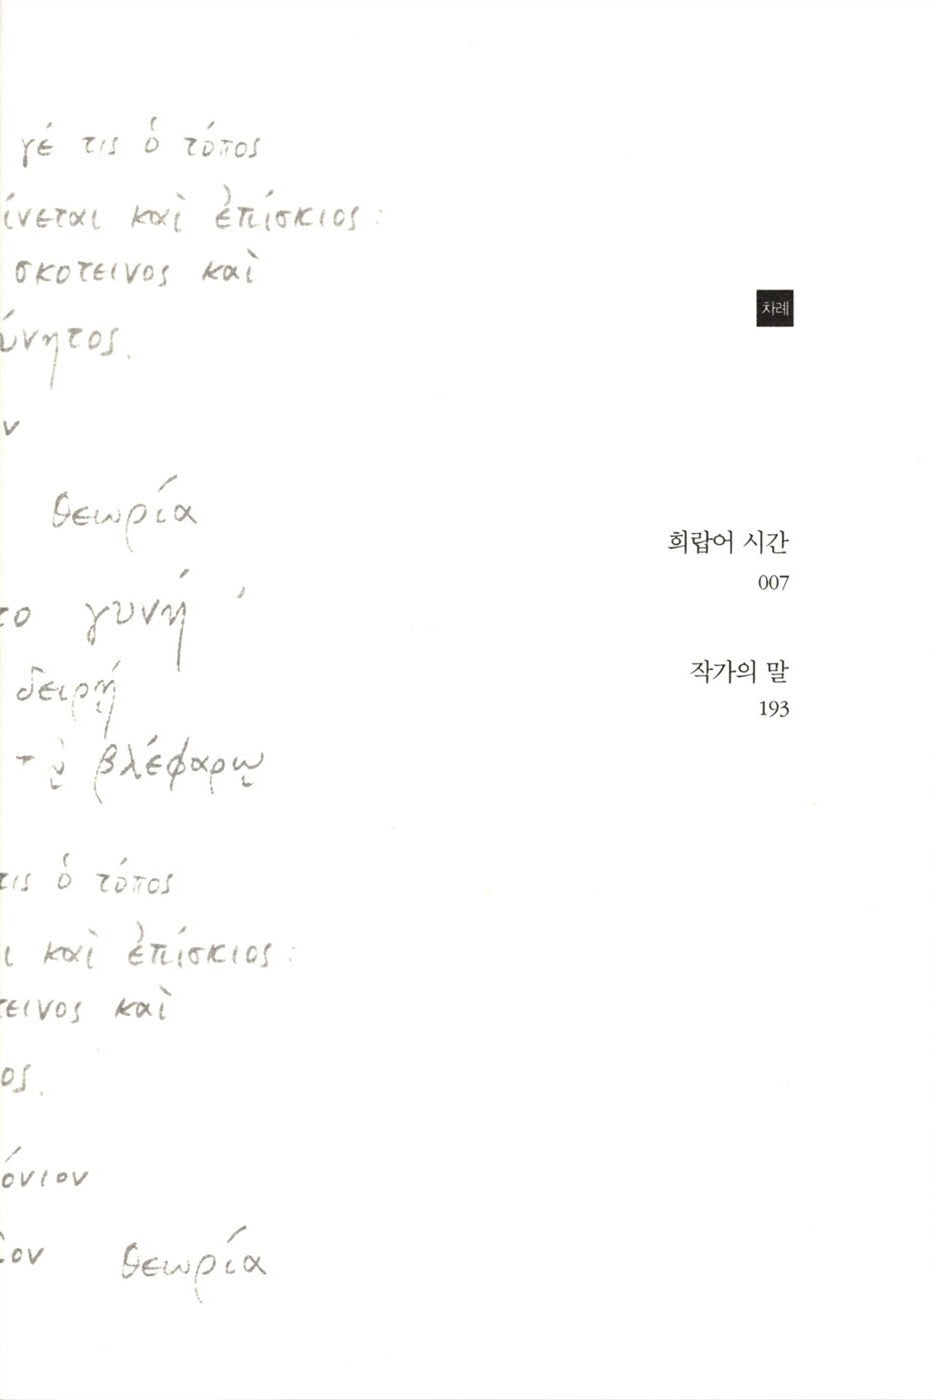 γέ τις ὁ τόπος
ίνεται καὶ ἐπίσκιος·
σκοτεινος καὶ
ύνητος.
ν
θεωρία
το γυνή
δειρῄ
βλέφαρῳ
τις ὁ τόπος
ι καὶ ἐπίσκιος:
τεινος καὶ
ος.
όνιον
ῖον θεωρία
차례
희랍어 시간
007
작가의 말
193